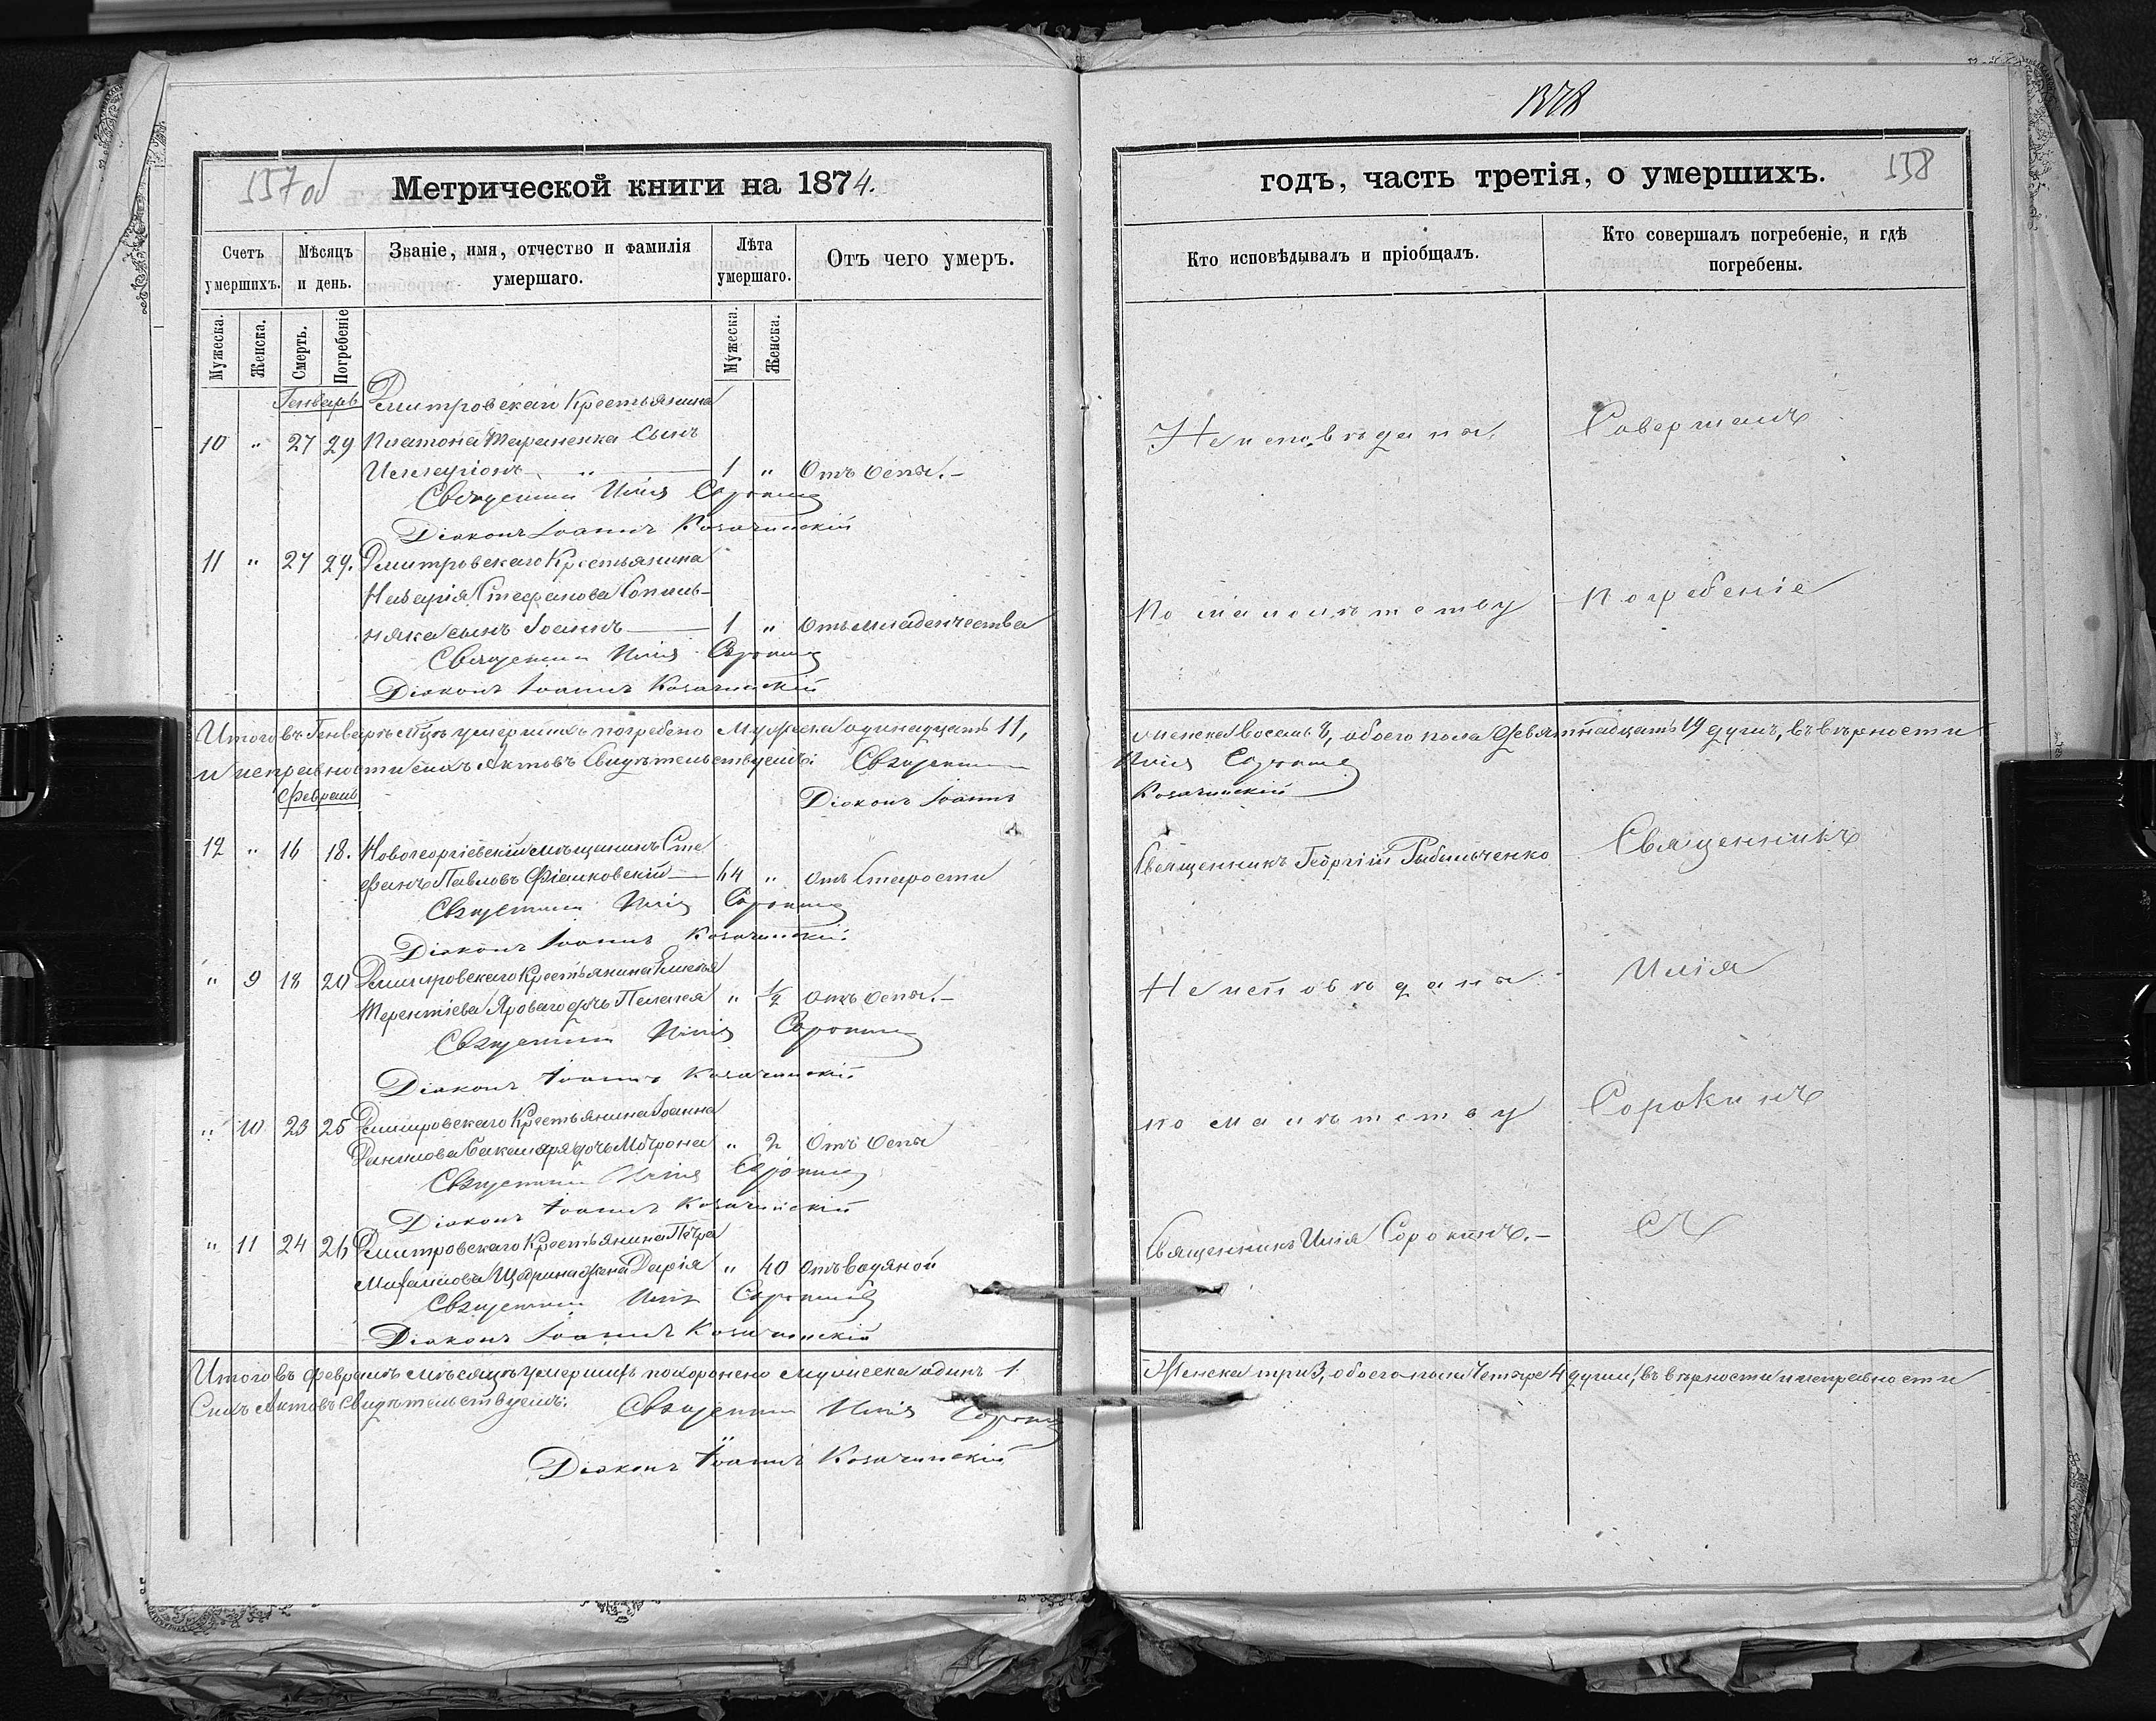 157 об
Метрической книги на 1874.
Счетъ умершихъ.
Мѣсяцъ и день.
Званіе, имя, отчество и фамилія умершаго.
Лѣта умершаго.
Отъ чего умеръ.
Мужеска.
Женска.
Смерть.
Погребеніе
Мужеска.
Женска.
Генварь
Дмитровскаго Крестьянина
10 " 27 29 Платона Тараненка Сынъ
1 " Отъ оспы.-
Священникъ Илія Сорокинъ
Діаконъ Іоаннъ Козачинскій
11 " 27 29. Дмитровскаго Крестьянина
Назарія Стефанова Сотниь-
няка сынъ Іоаннъ 1 " Отъ младенчества
Священникъ Илія Сорокинъ
Діаконъ Іоаннъ Козачинскій
Итого въ Генварѣ м-цѣ умершихъ погребено Мужеска одинадцать 11,
и исправности сихъ Актовъ Свидѣтельствуемъ: Священникъ
Февраль
Діаконъ Іоаннъ
12 " 16 18. Новогеоргіевскій мѣщанинъ Сте
фанъ Павловъ Фіалковскій 64 " отъ старости
Священникъ Илія Сорокинъ
Діаконъ Іоаннъ Козачинскій
" 9 18 20 Дмитровскаго Крестьянина
Терентіева Яроваго дочь Пелагея " ½ отъ оспы.-
Священникъ Илія Сорокинъ
Діаконъ Іоаннъ Козачинскій
" 10 23 25 Дмитровскаго Крестьянина Іоанна
Данилова дочь Мотрона " 2 Отъ оспы
Священникъ Илія Сорокинъ
Діаконъ Іоаннъ Козачинскій
" 11 24 26 Дмитровскаго Крестьянина Петра
Михайлова Щедрина жена Дарія " 40 отъ водяной
Священникъ Илія Сорокинъ
Діаконъ Іоаннъ Козачинскій
Итого въ Февралѣ мѣсяцѣ умершихъ похоронено мужеска одинъ 1
Сихъ Актовъ Свидѣтельствуемъ. Священникъ Илія Сорокинъ
Діаконъ Іоаннъ Козачинскій
годъ, часть третія, о умершихъ.
158
Кто исповѣдывалъ и пріобщалъ.
Кто совершалъ погребеніе, и гдѣ погребены.
Не исповѣданы,
Совершалъ
По малолѣтству
Погребеніе
женска восемь 8, обоего пола девятнадцать 19 душъ, въ вѣрности
Илія Сорокинъ
Козачинскій
Священникъ Георгій Рыбальченко
Священникъ
Не исповѣданы
Илія
по малѣтству
Сорокинъ
Священникъ Илія Сорокинъ.-
Женска три 3, обоего пола Четыре 4 души, въ вѣрности и исправности